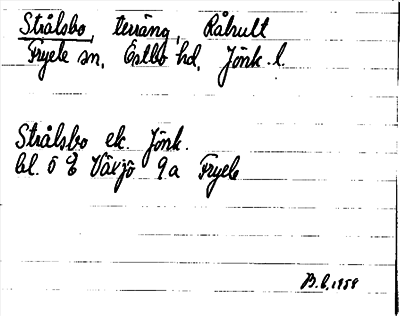 Strålsbo, terräng, Råhult
Fryele sn, Östbo hd, Jönk. l.
Strålsbo ek. Jönk.
bl. 5 E Växjö 9a Fryele
B.L. 1958